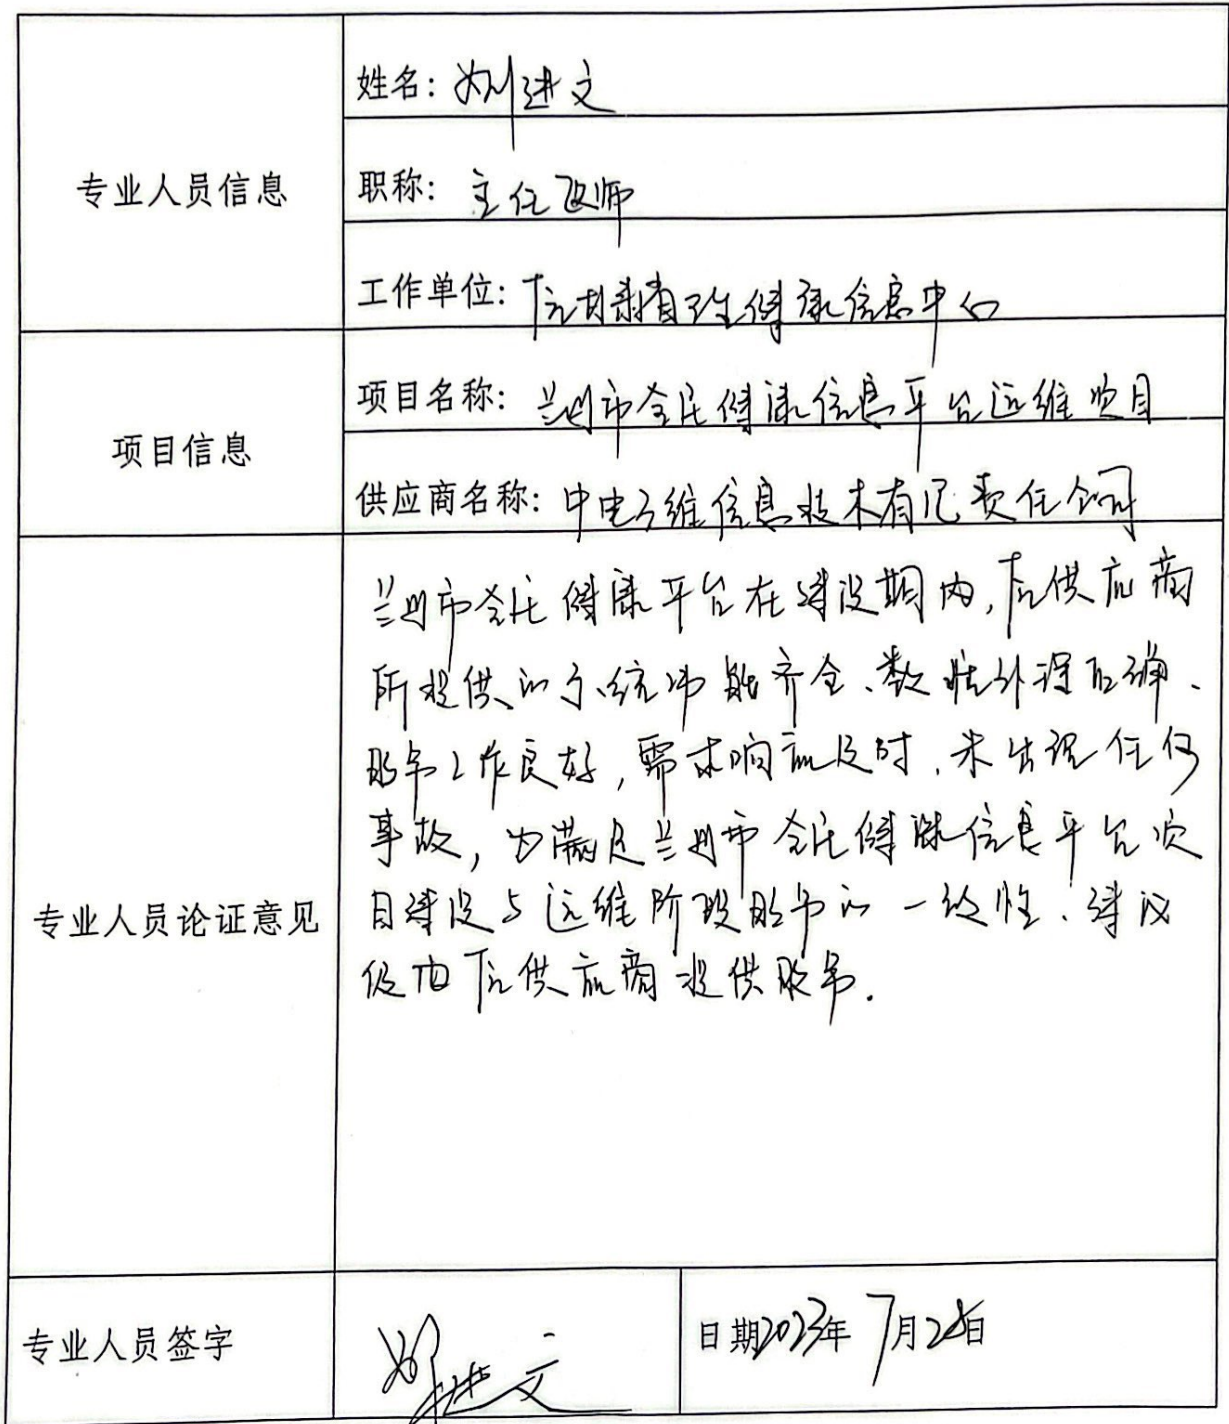 专业人员信息
姓名：刘进文
职称：主任医师
工作单位：甘肃省卫生健康信息中心
项目信息
项目名称：兰州市全民健康信息平台运维项目
供应商名称：中电万维信息技术有限责任公司
专业人员论证意见
兰州市全民健康平台在建设期内，原供应商
所提供的系统功能齐全、数据处理正确、
服务工作良好，需求响应及时、未出现任何
事故，为满足兰州市全民健康信息平台项
目建设与运维阶段服务的一致性、建议
仍由原供应商提供服务.
专业人员签字
刘进文
日期2023年7月2日